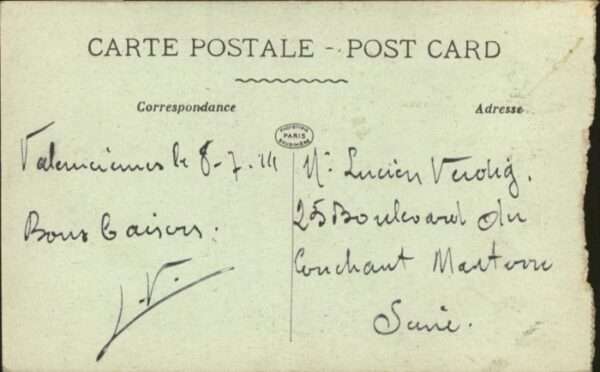 CARTE POSTALE - POST CARD
Correspondance
Adresse
PARIS
Valenciennes le 8-7-14
Bons Baisers.
L.V.
Mr Lucien Verdig.
25 Boulevard du
Couchant Nanterre
Seine.